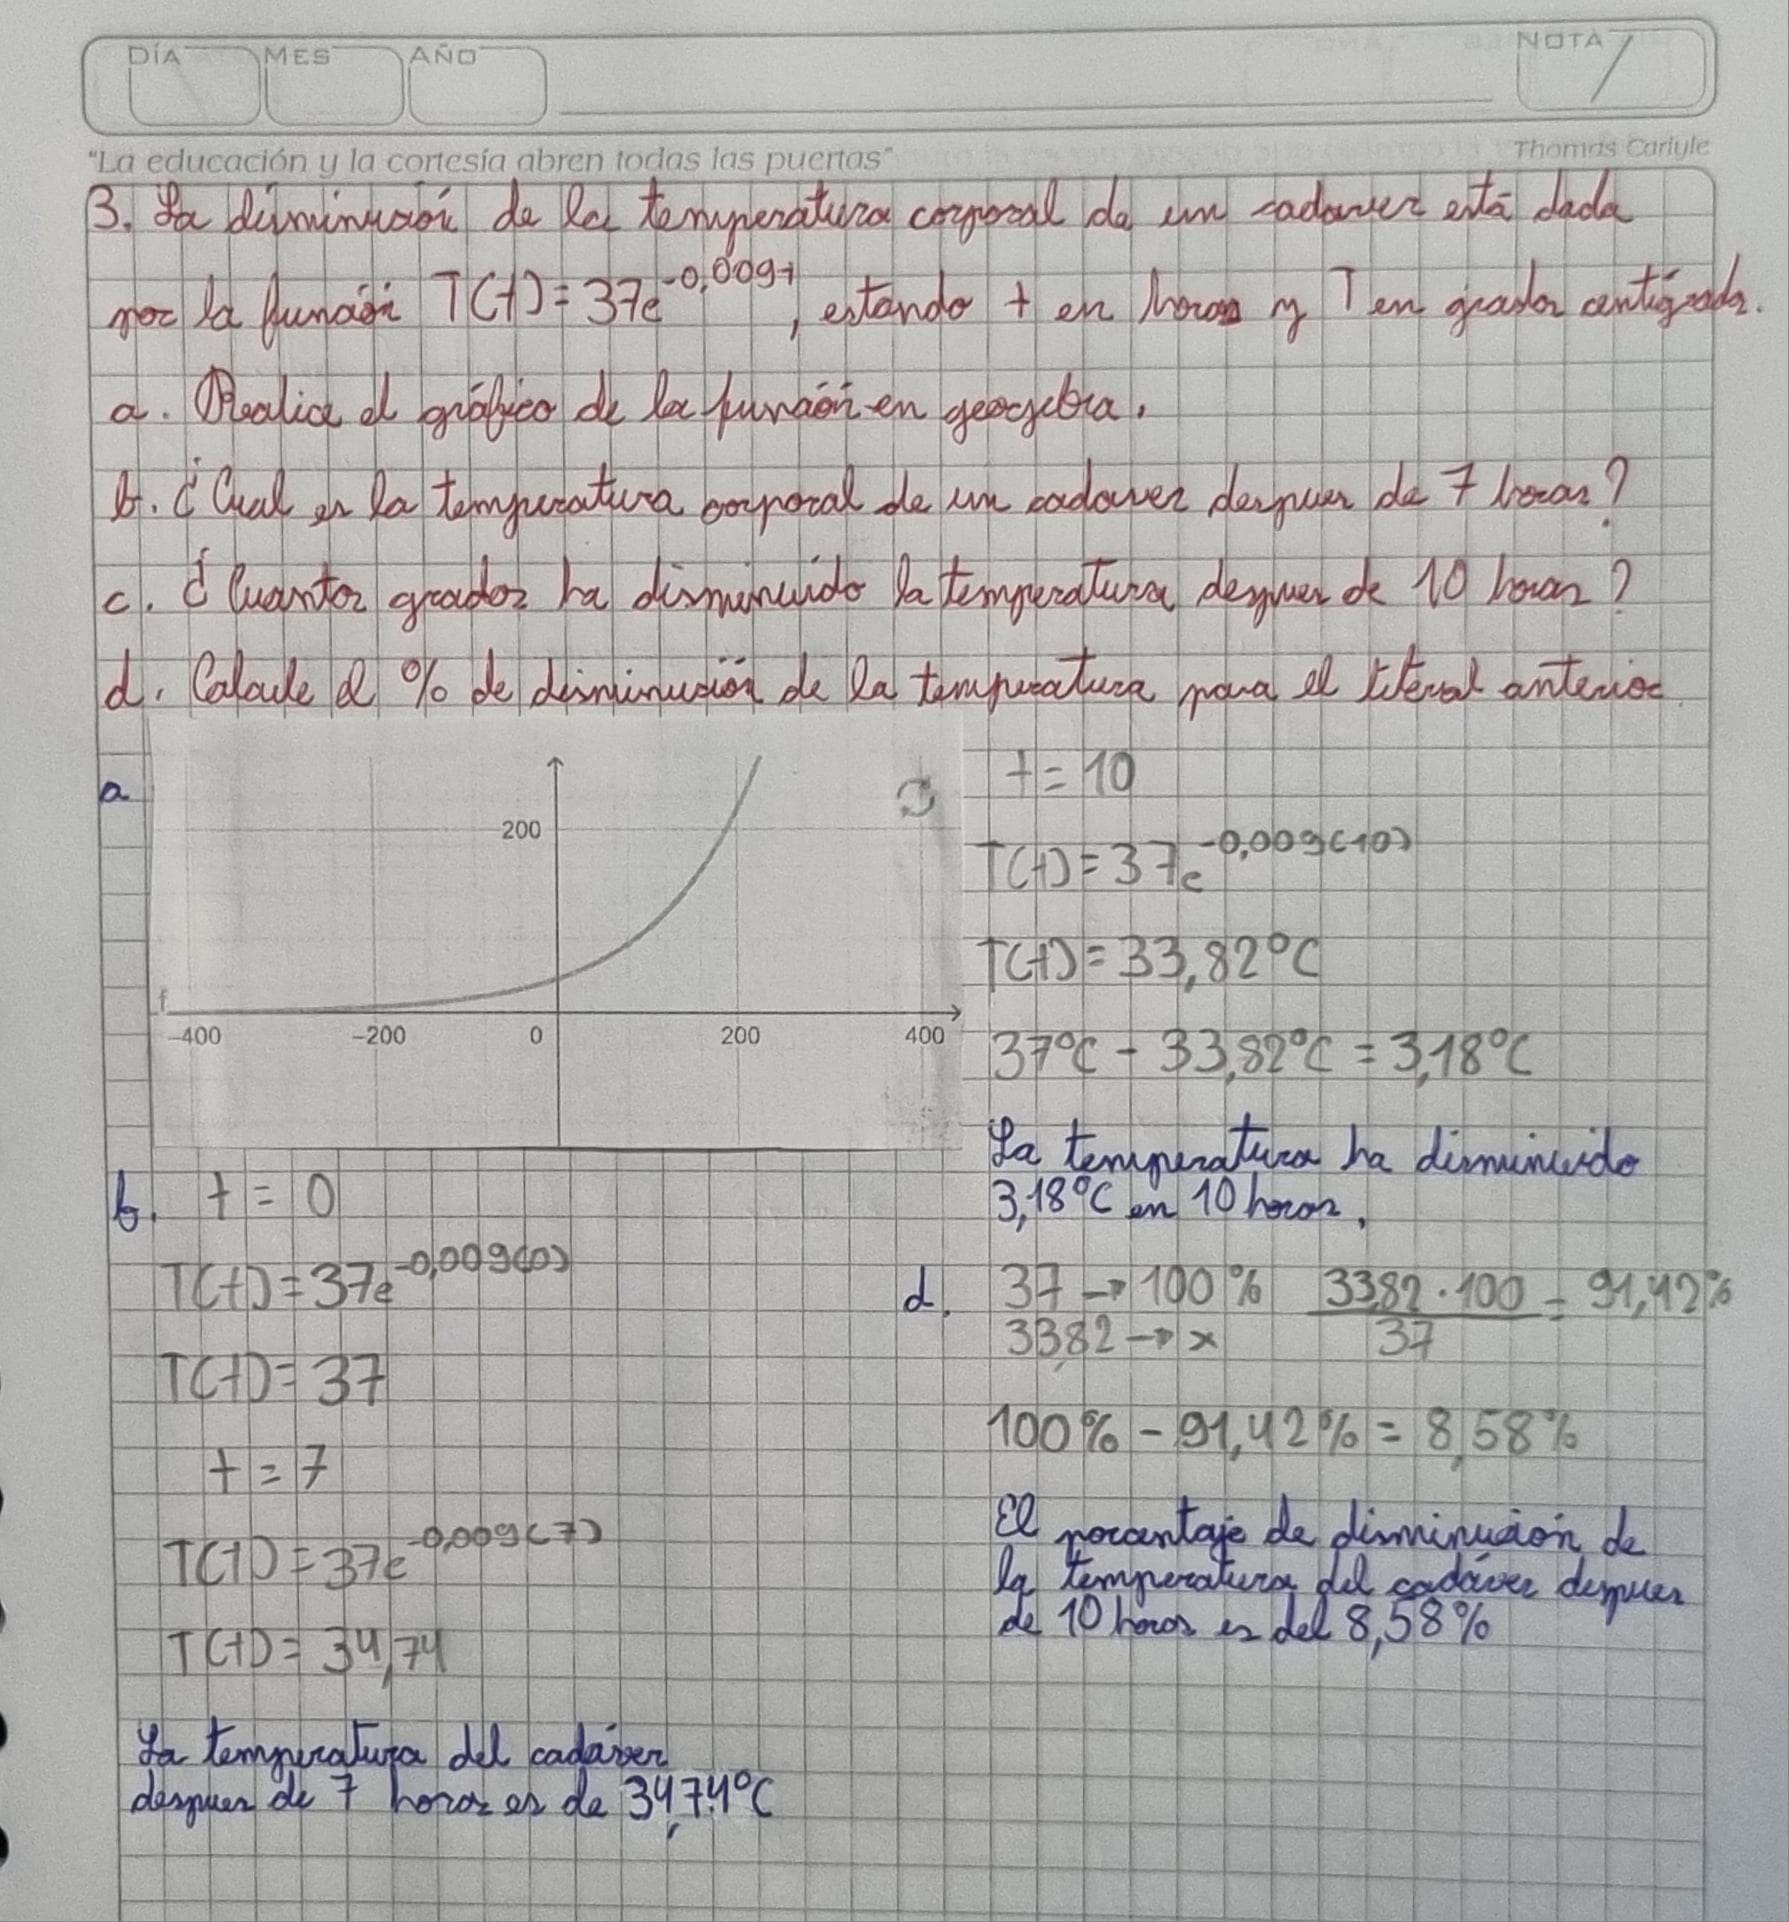 DÍA MES AÑO NOTA
"La educación y la cortesía abren todas las puertas" Thomas Carlyle
3. La diminución de la temperatura corporal de un cadaver está dada
por la función T(t)=37e^-0,009t, estando t en horas y T en grados centigrados.
a. Realice el gráfico de la función en geogebra.
b. ¿Cual es la temperatura corporal de un cadaver despues de 7 horas?
c. ¿Cuantos grados ha disminuido la temperatura despues de 10 horas?
d. Calcule el % de disminución de la temperatura para el literal anterior
a
200
f
-400 -200 0 200 400
b. t=0
T(t)=37e^-0,009(0)
T(t)=37
t=7
T(t)=37e^-0,009(7)
T(t)=34,74
La temperatura del cadáver
despues de 7 horas es de 34,74°C
t=10
T(t)=37e^-0,009(10)
T(t)=33,82°C
37°C-33,82°C=3,18°C
La temperatura ha disminuido
3,18°C en 10 horas.
d. 37→100% 33,82·100/37=91,42%
33,82→x
100%-91,42%=8,58%
El porcentaje de disminución de
la temperatura del cadáver despues
de 10 horas es del 8,58%